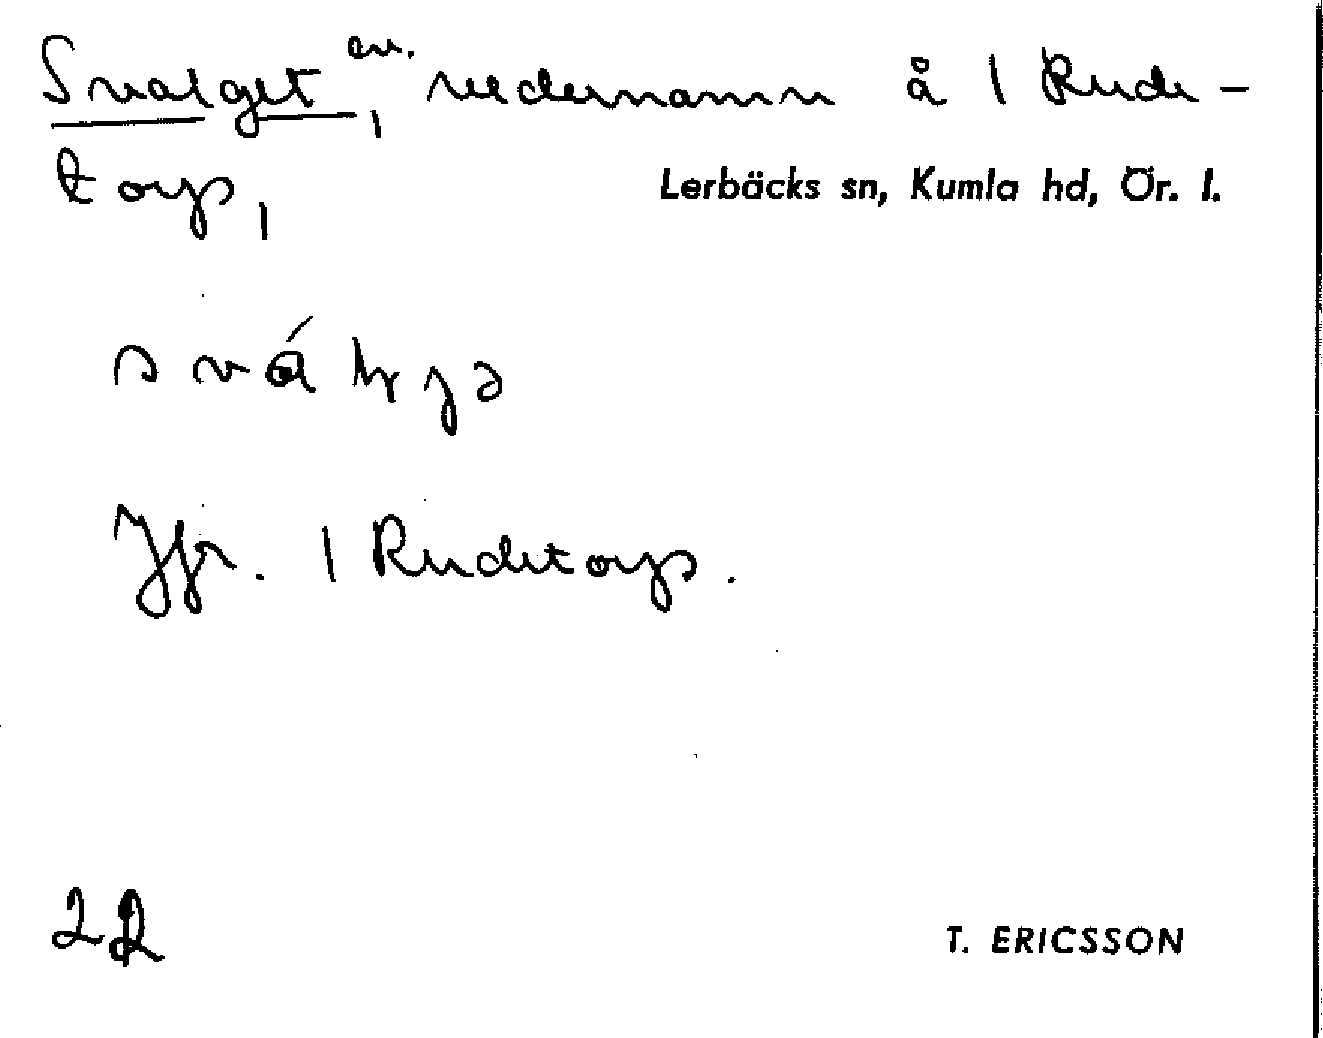 Svalget, en. vedernamn å 1 Rude-
torp,
Lerbäcks sn, Kumla hd, Ör. l.
Jfr. 1 Rudetorp.
22
T. ERICSSON